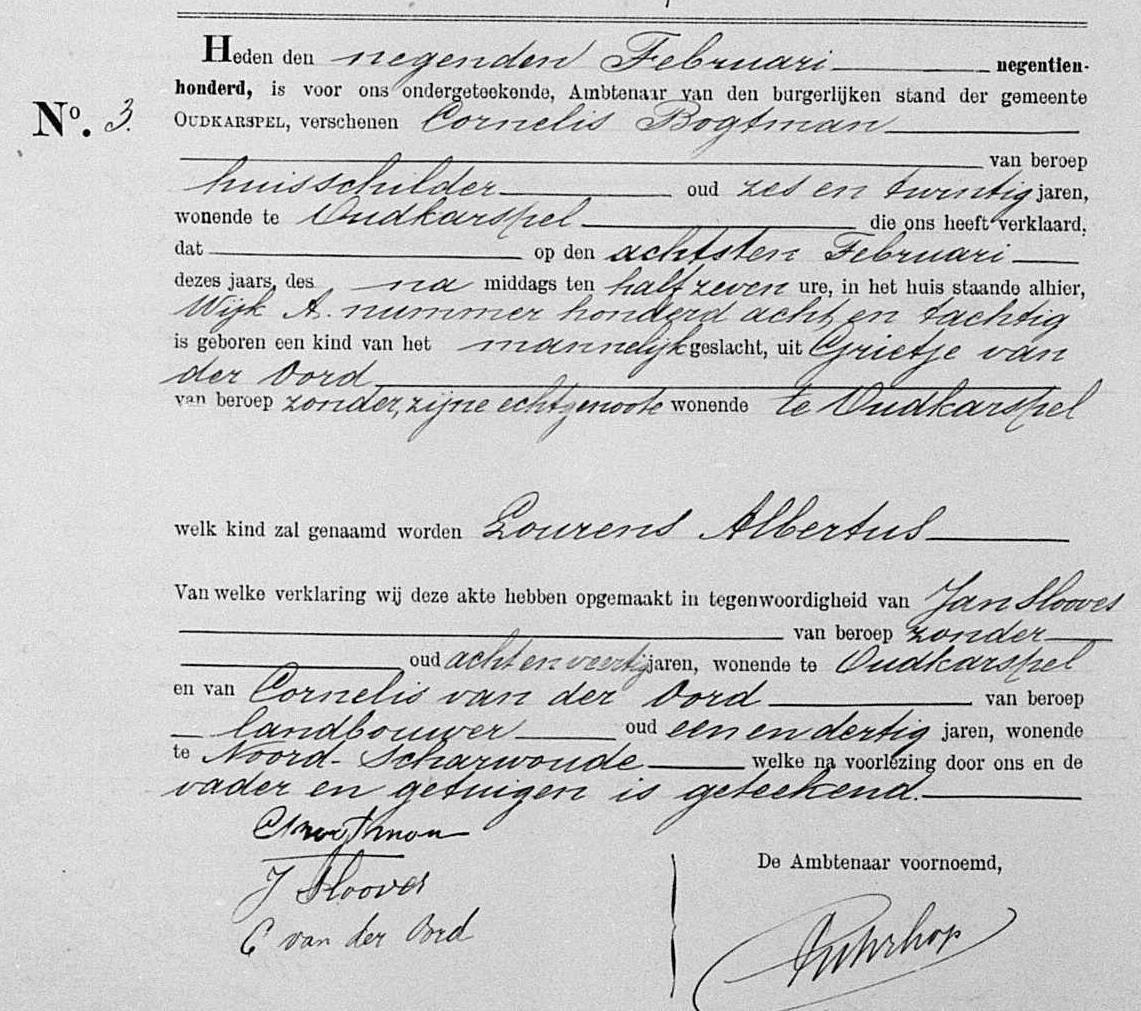 Heden den negenden Februari negentien-
honderd, is voor ons ondergeteekende, Ambtenaar van den burgerlijken stand der gemeente
No. 3. OUDKARSPEL, verschenen Cornelis Bogtman
van beroep
huisschilder oud zes en twintig jaren,
wonende te Oudkarspel die ons heeft verklaard,
dat op den achtsten Februari
dezes jaars, des na middags ten half zeven ure, in het huis staande alhier,
Wijk A. nummer honderd acht en tachtig
is geboren een kind van het mannelijk geslacht, uit Grietje van
der Oord
van beroep zonder, zijne echtgenoote wonende te Oudkarspel
welk kind zal genaamd worden Lourens Albertus
Van welke verklaring wij deze akte hebben opgemaakt in tegenwoordigheid van Jan Slooves
van beroep zonder
oud acht en veertig jaren, wonende te Oudkarspel
en van Cornelis van der Oord van beroep
landbouwer oud een en dertig jaren, wonende
te Noord-Scharwoude welke na voorlezing door ons en de
vader en getuigen is geteekend.
C Bogtman
J Slooves
C van der Oord
De Ambtenaar voornoemd,